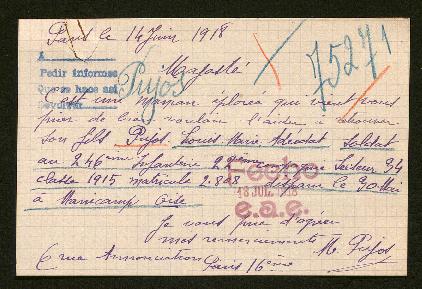 Paris le 14 Juin 1918
75271
A
Pedir informes
Que se hace así
Devolver
Pujos
Majesté
C'est une maman éplorée qui vient vous
prier de bien vouloir l'aider à retrouver
son fils Pujos Louis Marie Adéodat Soldat
au 246ème Infanterie Secteur 34
classe 1915 matricule 2.888 disparu le 30 Mai
à Manicamp Oise
Fecho
18 JUL. 1918
e.a.e.
Je vous prie d'agréer
mes remerciements
Me Pujos
6 rue Annonciation Paris 16ème